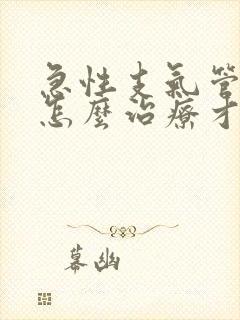 急性支氣管
怎麼治療才
幕幽